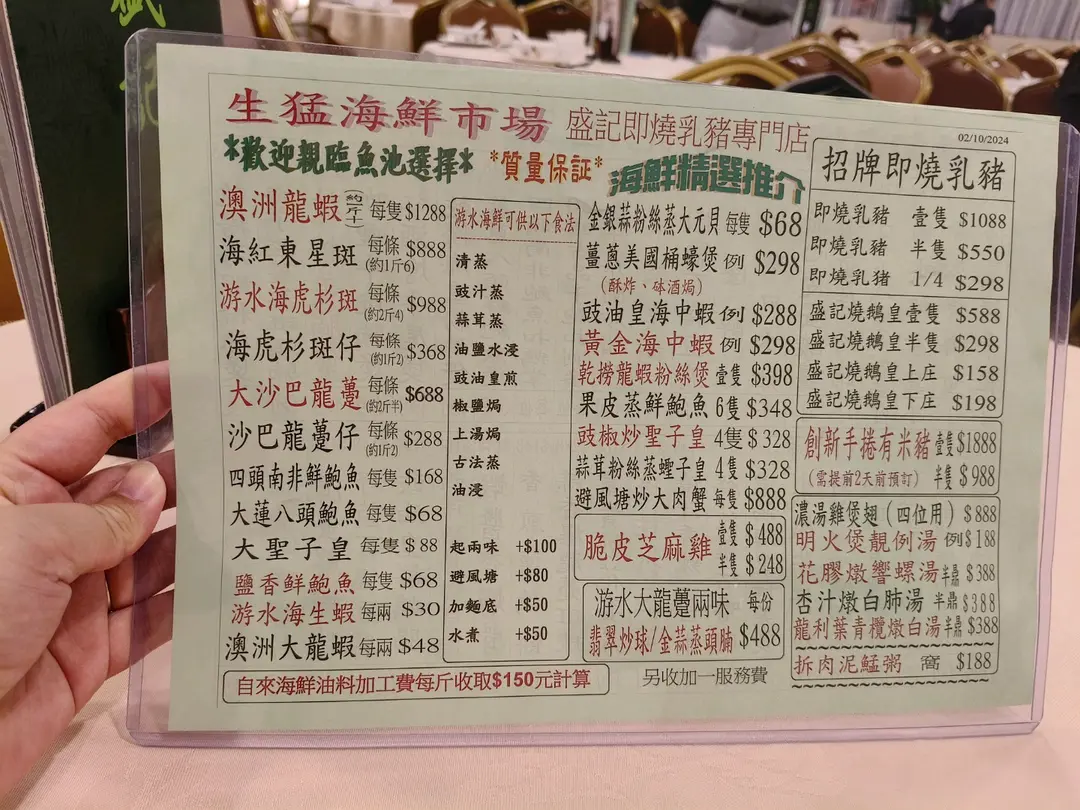 生猛海鮮市場
盛記即燒乳豬專門店
02/10/2024
*歡迎親臨魚池選擇*
*質量保証*
海鮮精選推介
澳洲龍蝦 每隻 $1288
海紅東星斑 每條(約1斤6) $888
游水海虎杉斑 每條(約2斤4) $988
海虎杉斑仔 每條(約1斤2) $368
大沙巴龍躉 每條(約2斤半) $688
沙巴龍躉仔 每條(約1斤2) $288
四頭南非鮮鮑魚 每隻 $168
大蓮八頭鮑魚 每隻 $68
大聖子皇 每隻 $88
鹽香鮮鮑魚 每隻 $68
游水海生蝦 每兩 $30
澳洲大龍蝦 每兩 $48
自來海鮮油料加工費每斤收取$150元計算
游水海鮮可供以下食法
清蒸
豉汁蒸
蒜茸蒸
油鹽水浸
豉油皇煎
椒鹽焗
上湯焗
古法蒸
油浸
起兩味 +$100
避風塘 +$80
加麵底 +$50
水煮 +$50
金銀蒜粉絲蒸大元貝 每隻 $68
薑蔥美國桶蠔煲 例 $298
(酥炸、砵酒焗)
豉油皇海中蝦 例 $288
黃金海中蝦 例 $298
乾撈龍蝦粉絲煲 壹隻 $398
果皮蒸鮮鮑魚 6隻 $348
豉椒炒聖子皇 4隻 $328
蒜茸粉絲蒸蟶子皇 4隻 $328
避風塘炒大肉蟹 每隻 $888
脆皮芝麻雞 壹隻 $488
半隻 $248
游水大龍躉兩味 每份
翡翠炒球/金蒜蒸頭腩 $488
另收加一服務費
招牌即燒乳豬
即燒乳豬 壹隻 $1088
即燒乳豬 半隻 $550
即燒乳豬 1/4 $298
盛記燒鵝皇壹隻 $588
盛記燒鵝皇半隻 $298
盛記燒鵝皇上庄 $158
盛記燒鵝皇下庄 $198
創新手捲有米豬 壹隻 $1888
(需提前2天前預訂) 半隻 $988
濃湯雞煲翅(四位用) $888
明火煲靚例湯 例 $188
花膠燉響螺湯 半鼎 $388
杏汁燉白肺湯 半鼎 $388
龍利葉青欖燉白湯 半鼎 $388
拆肉泥鯭粥 窩 $188